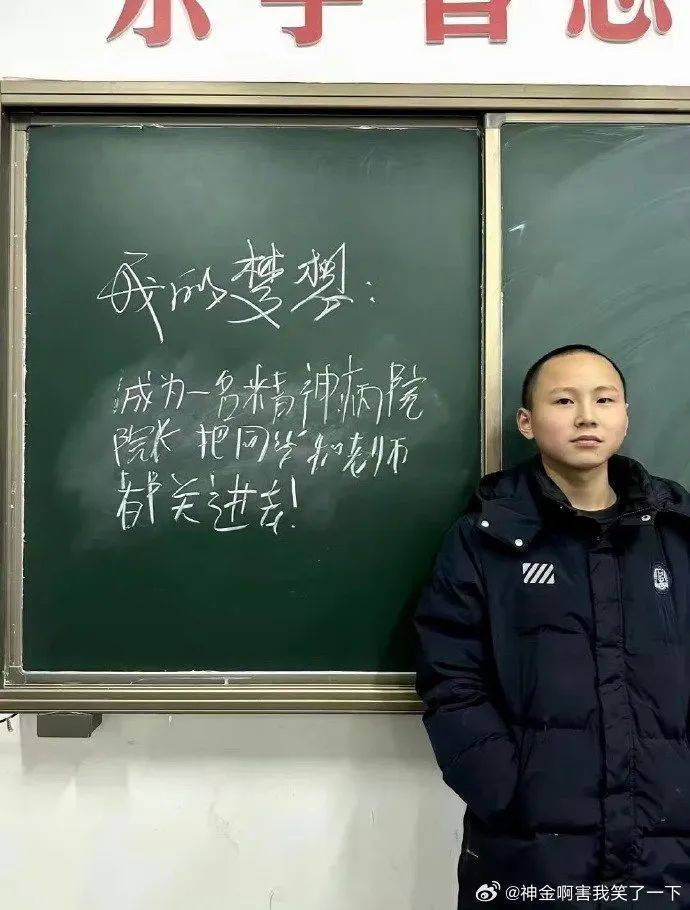 我的梦想:
成为一名精神病院
院长把同学和老师
都关进去!
@神金啊害我笑了一下